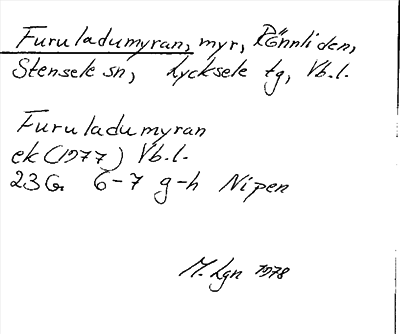 Furuladumyran, myr, Rönnliden,
Stensele sn, Lycksele tg, Vb.l.
Furuladumyran
ek (1977) Vb.l.
23G 6-7 g-h Nipen
M. Lgn 1978